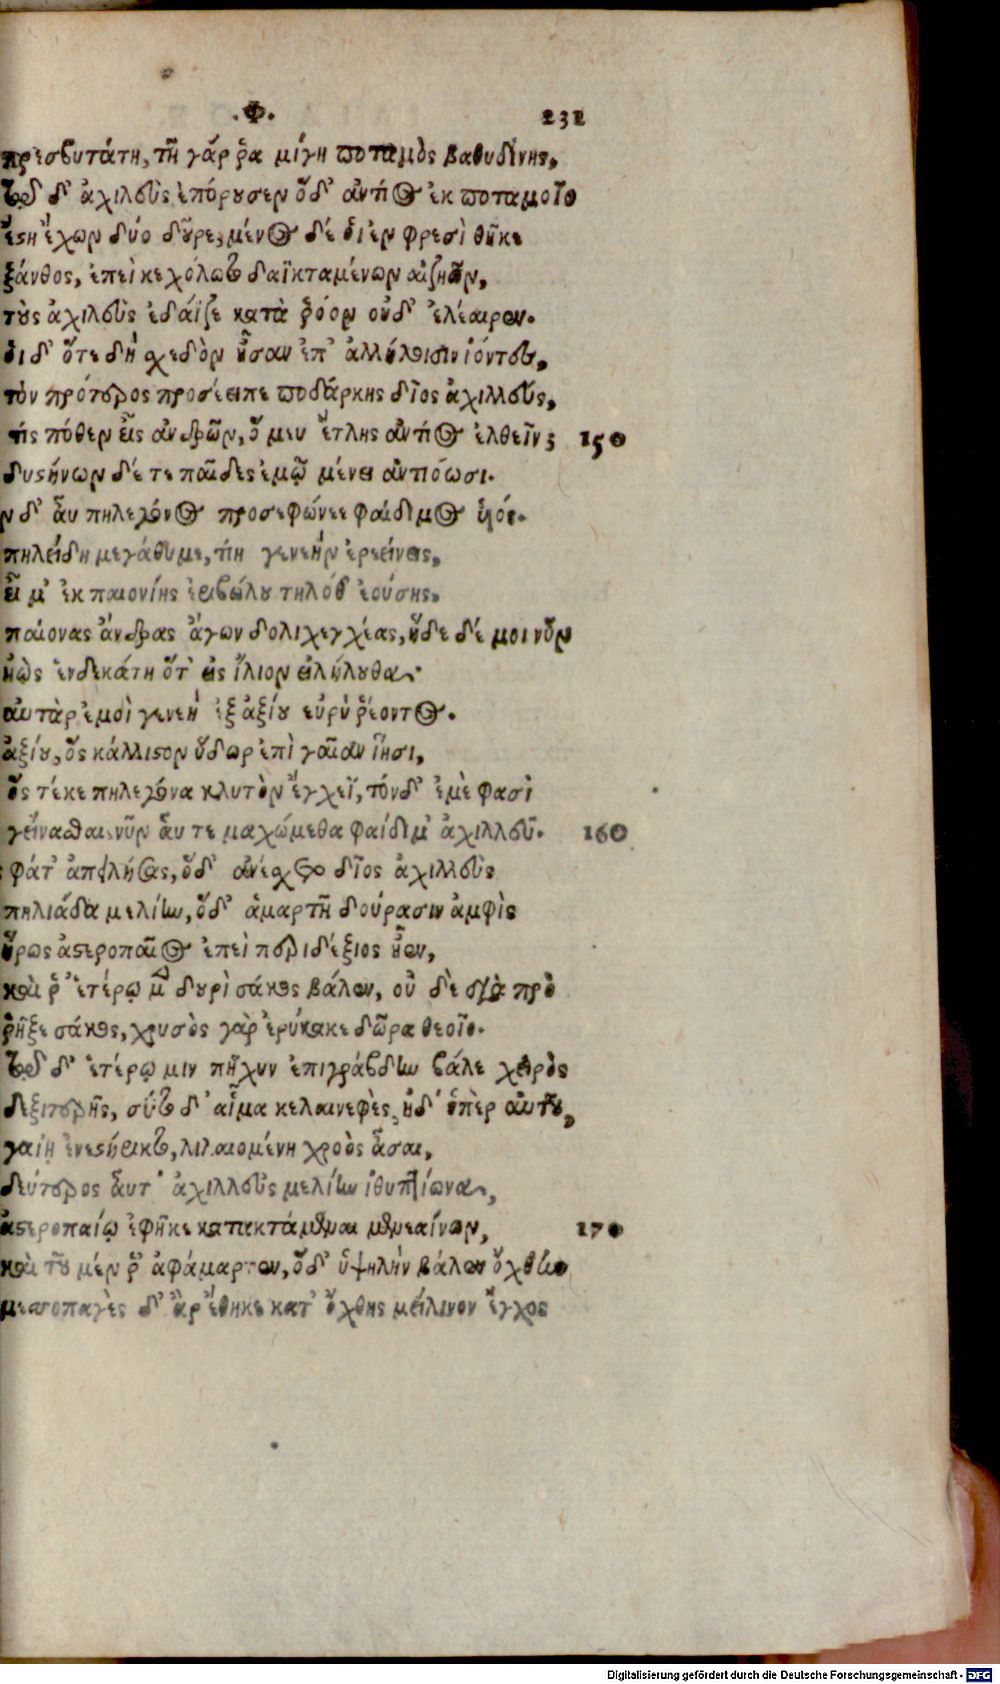 .Φ. 232
πρεσβυτάτη, τῆ γάρ ῥα μίγη ποταμὸς βαθυδίνης,
τῷ δ' ἀχιλεὺς ἐπόρουσεν ὅδ' ἀντίος ἐκ ποταμοῖο
ἔστη ἔχων δύο δοῦρε, μένος δέ οἱ ἐν φρεσὶ θῆκε
ξάνθος, ἐπεὶ κεχόλωτο δαϊκταμένων αἰζηῶν,
τοὺς ἀχιλεὺς ἐδάϊζε κατὰ ῥόον οὐδ' ἐλέαιρεν.
οἱ δ' ὅτε δὴ σχεδὸν ἦσαν ἐπ' ἀλλήλοισιν ἰόντες,
τὸν πρότερος προσέειπε ποδάρκης δῖος ἀχιλλεύς,
τίς πόθεν εἶς ἀνδρῶν, ὅ μευ ἔτλης ἀντίος ἐλθεῖν; 150
δυστήνων δέ τε παῖδες ἐμῷ μένει ἀντιόωσι.
ν δ' αὖ πηλεγόνος προσεφώνεε φαίδιμος υἱός.
πηλείδη μεγάθυμε, τίη γενεὴν ἐρεείνεις,
εἴμ' ἐκ παιονίης ἐριβώλου τηλόθ' ἐούσης.
παίονας ἄνδρας ἄγων δολιχεγχέας, ἥδε δέ μοι νῦν
ἠὼς ἑνδεκάτη ὅτ' εἰς ἴλιον εἰλήλουθα.
αὐτὰρ ἐμοὶ γενεὴ ἐξ ἀξίου εὐρὺ ῥέοντος.
ἀξίου, ὃς κάλλιστον ὕδωρ ἐπὶ γαῖαν ἵησι,
ὃς τέκε πηλεγόνα κλυτὸν ἔγχεϊ, τόνδ' ἐμὲ φασὶ
γείνασθαι. νῦν αὖ τε μαχώμεθα φαίδιμ' ἀχιλλεῦ. 160
ς φάτ' ἀπειλήσας, ὅδ' ἀνέσχετο δῖος ἀχιλλεὺς
πηλιάδα μελίην, ὅδ' ἁμαρτῆ δούρασιν ἀμφὶς
ἥρως ἀστεροπαῖος ἐπεὶ περιδέξιος ἦεν,
καὶ ῥ' ἑτέρῳ μὲν δουρὶ σάκος βάλεν, οὐ δὲ διὰ πρὸ
ῥῆξε σάκος, χρυσὸς γὰρ ἐρύκακε δῶρα θεοῖο.
τῷ δ' ἑτέρῳ μιν πῆχυν ἐπιγράβδην βάλε χειρὸς
δεξιτερῆς, σύτο δ' αἷμα κελαινεφὲς, ἡ δ' ὑπὲρ αὐτοῦ,
γαίη ἐνεστήρικτο, λιλαιομένη χροὸς ἆσαι,
δεύτερος αὖτ' ἀχιλλεὺς μελίην ἰθυπτίωνα,
ἀστεροπαίῳ ἐφῆκε κατακτάμεναι μενεαίνων, 170
καὶ τοῦ μέν ῥ' ἀφάμαρτεν, ὅδ' ὑψηλὴν βάλεν ὄχθην
μεσσοπαγὲς δ' ἄρ' ἔθηκε κατ' ὄχθης μείλινον ἔγχος
Digitalisierung gefördert durch die Deutsche Forschungsgemeinschaft - DFG